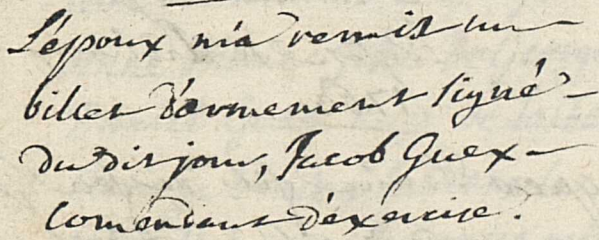 L'époux m'a remist un
billet d'armement signé
du dit jour, Jacob Guex
comendant d'éxercise.